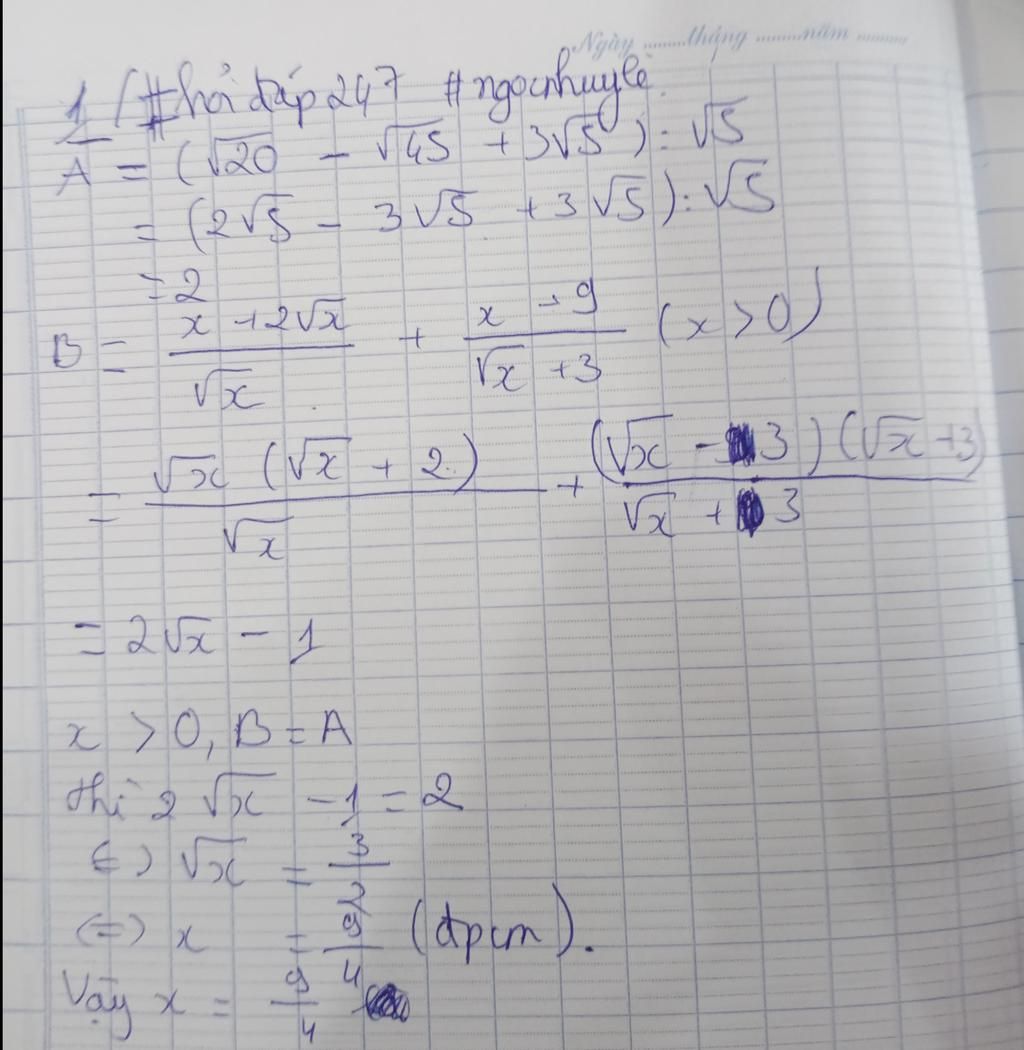 Ngày ........tháng .........năm .........
1/ #hỏi đáp247 #ngocnhuyle
A = (√20 - √45 + 3√5) : √5
= (2√5 - 3√5 + 3√5) : √5
= 2
B = (x + 2√x)/√x + (x - 9)/(√x + 3) (x > 0)
= (√x (√x + 2))/√x + ((√x - 3)(√x + 3))/(√x + 3)
= 2√x - 1
x > 0, B = A
thì 2√x - 1 = 2
(=) √x = 3/2
(=) x = 9/4 (đpcm).
Vậy x = 9/4